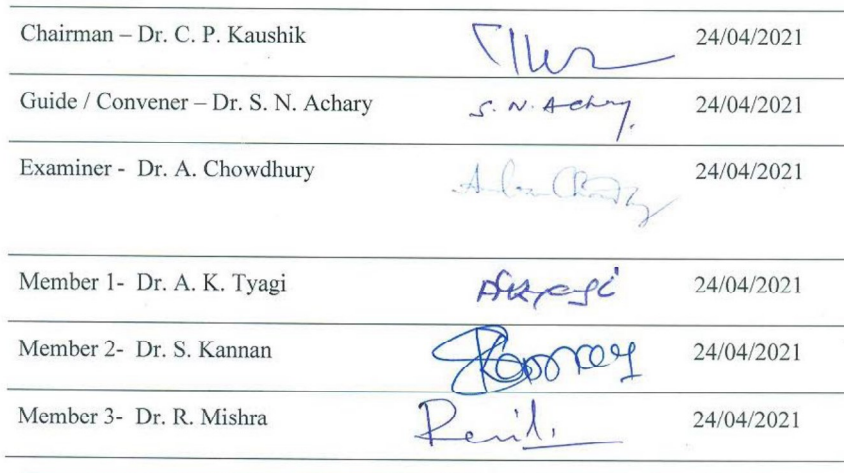 Chairman – Dr. C. P. Kaushik 24/04/2021
Guide / Convener – Dr. S. N. Achary S. N. Achary 24/04/2021
Examiner - Dr. A. Chowdhury 24/04/2021
Member 1- Dr. A. K. Tyagi AKTyagi 24/04/2021
Member 2- Dr. S. Kannan 24/04/2021
Member 3- Dr. R. Mishra 24/04/2021